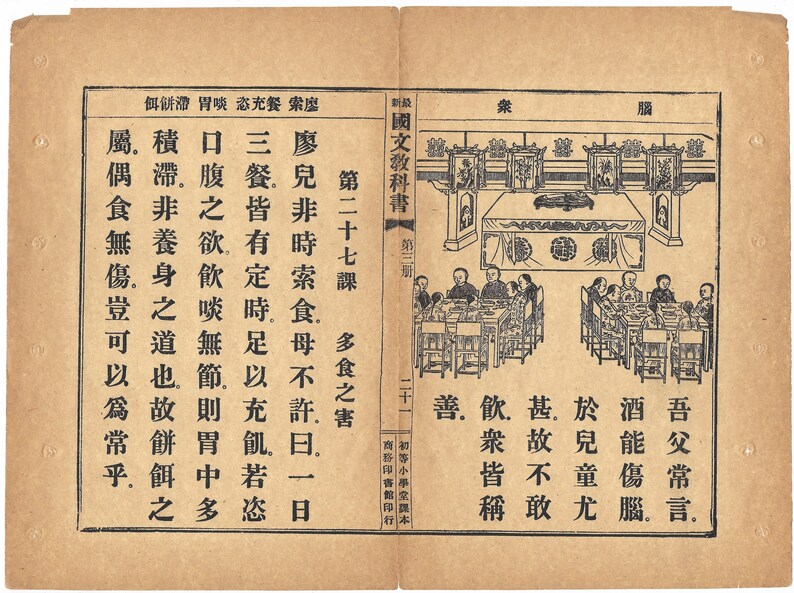 腦 衆
囍 囍 囍 囍 囍
吾父常言。
酒能傷腦。
於兒童尤
甚。故不敢
飲。衆皆稱
善。
最新國文教科書 第三册 二十一
初等小學堂課本
商務印書館印行
廖索 餐充恣 啖胃 滯餅餌
第二十七課 多食之害
廖兒非時索食。母不許。曰。一日
三餐。皆有定時。足以充飢。若恣
口腹之欲。飲啖無節。則胃中多
積滯。非養身之道也。故餅餌之
屬。偶食無傷。豈可以爲常乎。